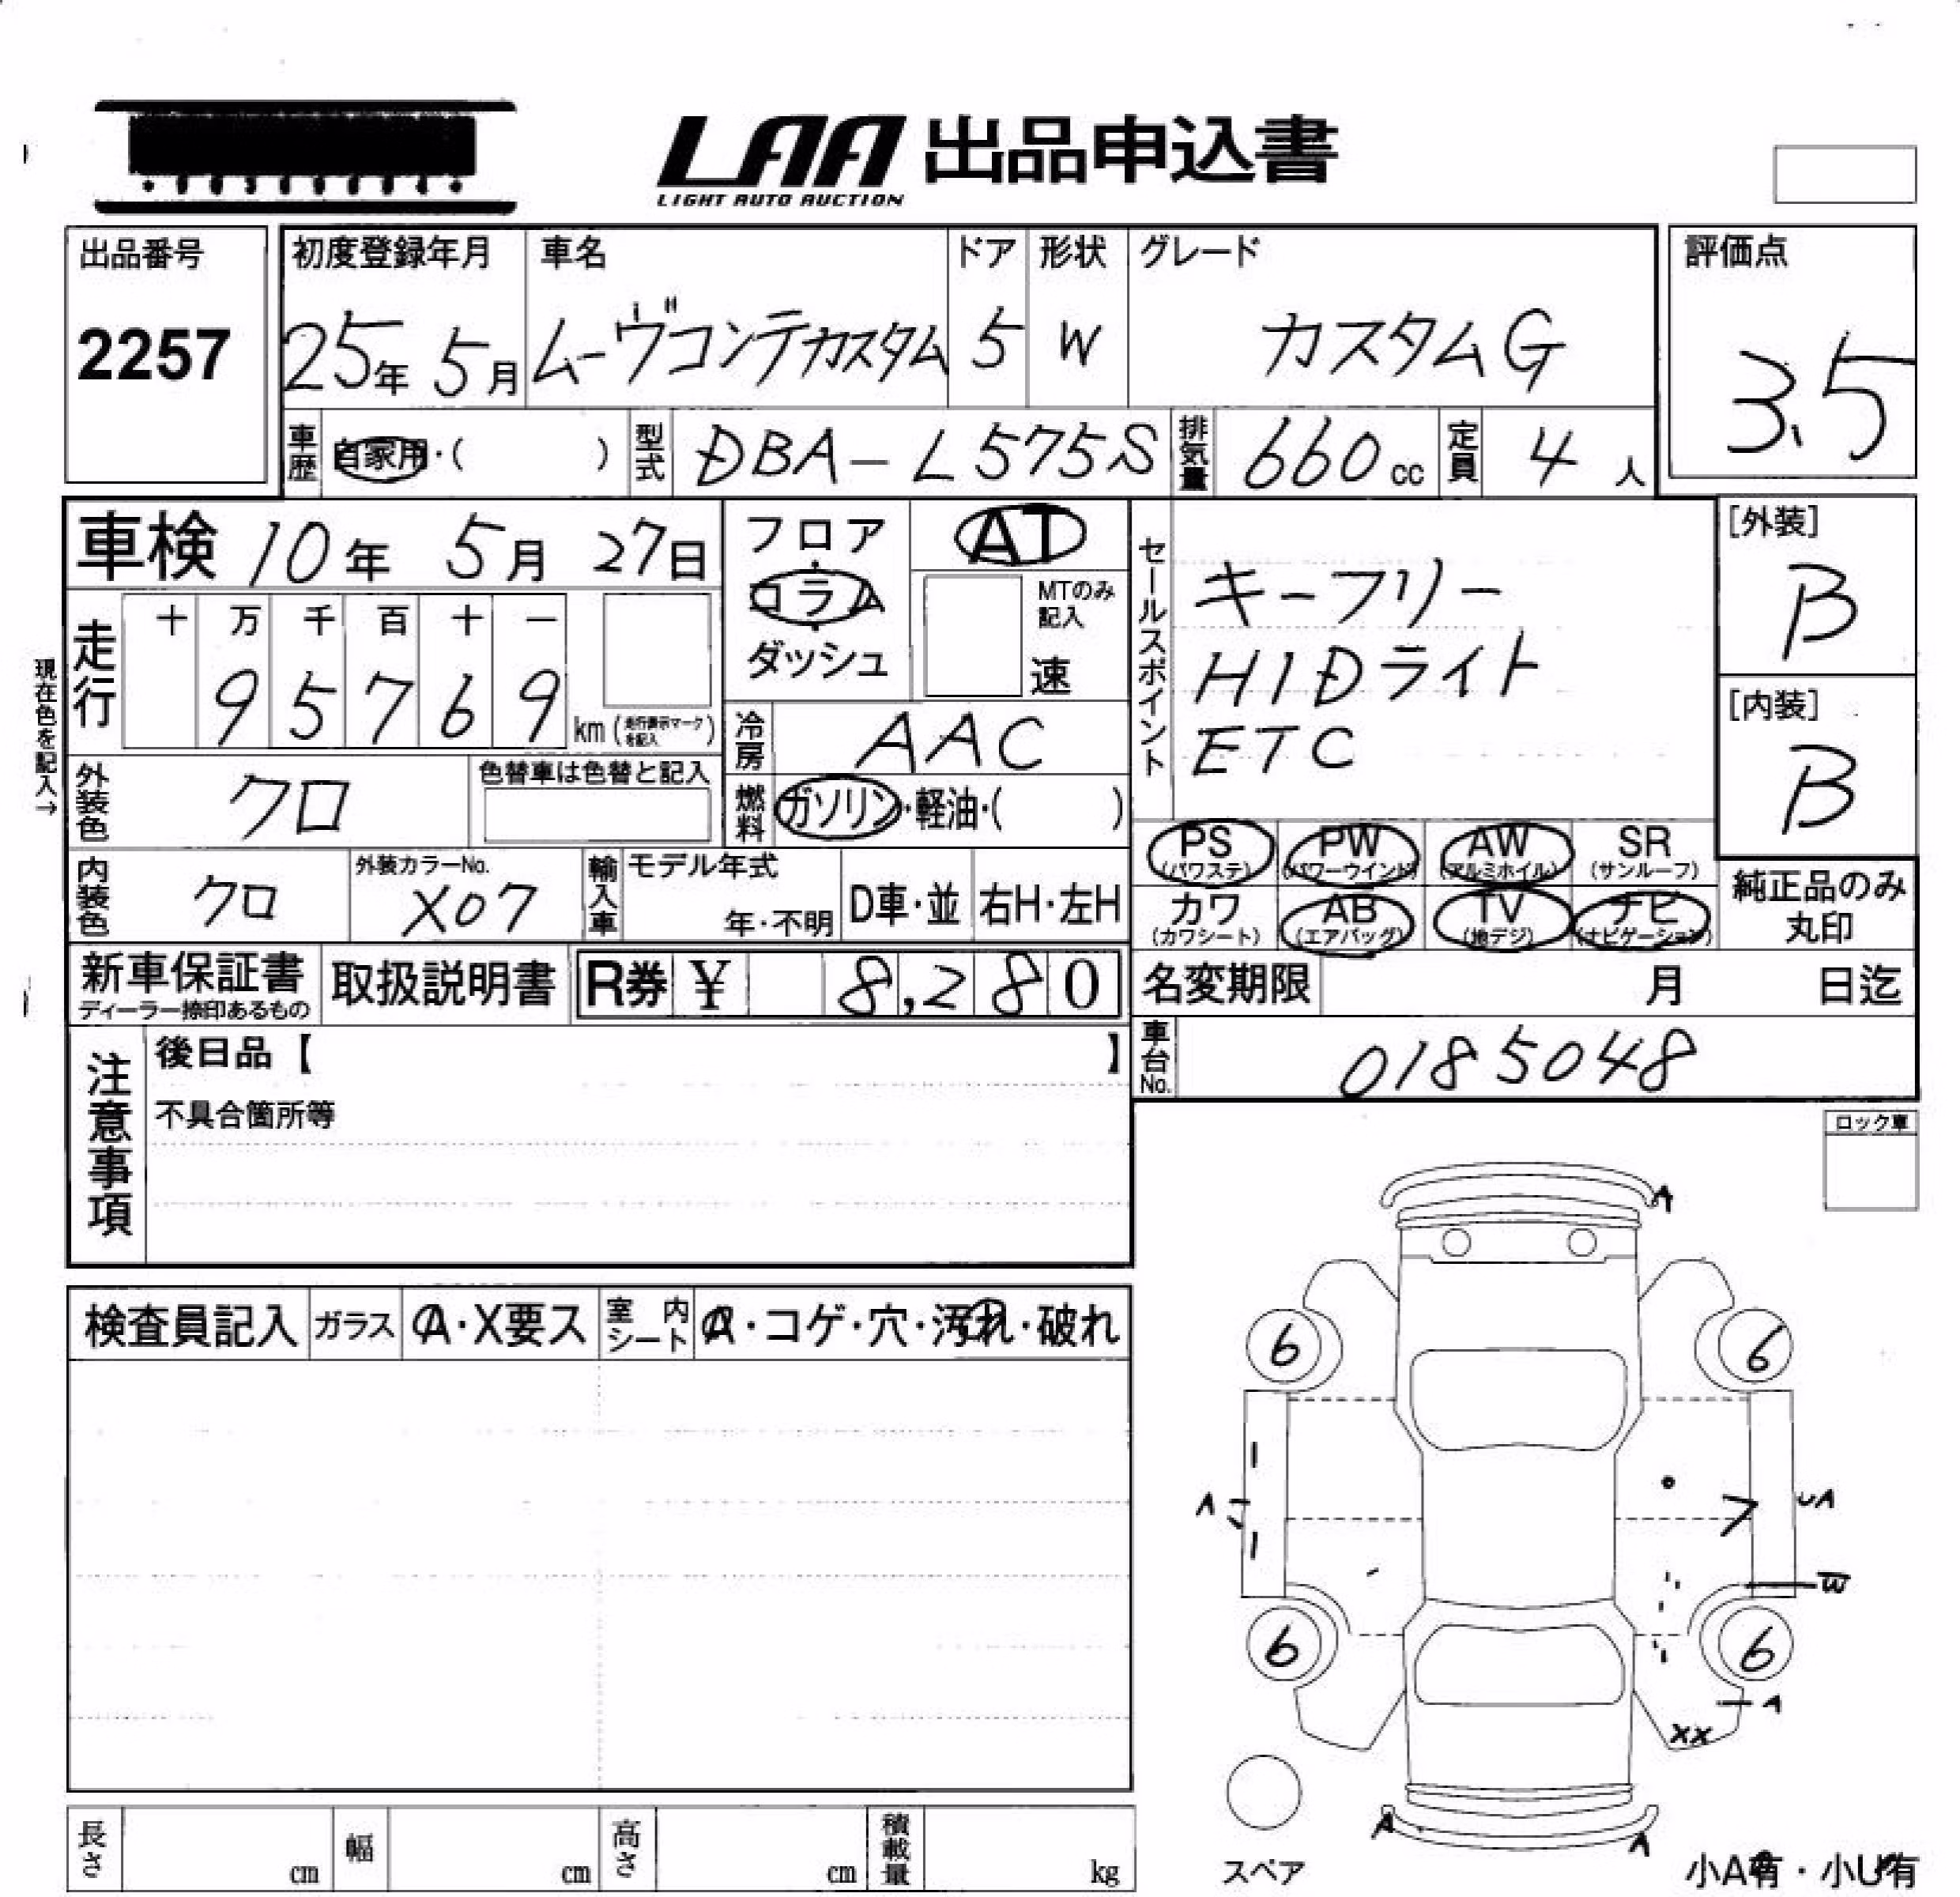 LAA 出品申込書
LIGHT AUTO AUCTION
出品番号
2257
初度登録年月
25年 5月
車名
ムーヴコンテカスタム
ドア
5
形状
W
グレード
カスタムG
評価点
3.5
車歴 自家用・( )
型式 DBA-L575S
排気量 660cc
定員 4人
車検 10年 5月 27日
フロア・コラム・ダッシュ
AT
MTのみ記入
速
セールスポイント
キーフリー
HIDライト
ETC
[外装]
B
[内装]
B
現在色を記入→
走行
十 万 千 百 十 一
9 5 7 6 9
km(走行表示マークを記入)
冷房 AAC
外装色 クロ
色替車は色替と記入
燃料 ガソリン・軽油・( )
PS(パワステ) PW(パワーウインド) AW(アルミホイル) SR(サンルーフ)
カワ(カワシート) AB(エアバッグ) TV(地デジ) ナビ(ナビゲーション)
純正品のみ丸印
内装色 クロ
外装カラーNo.
X07
輸入車 モデル年式
年・不明
D車・並
右H・左H
新車保証書
ディーラー捺印あるもの
取扱説明書
R券 ¥ 8,280
名変期限 月 日迄
車台No. 0185048
注意事項
後日品【 】
不具合箇所等
ロック車
検査員記入 ガラス A・X要ス 室内シート A・コゲ・穴・汚れ・破れ
A
6 6
A A
W
6 6
A
XX
A A
スペア
小A有・小U有
長さ cm 幅 cm 高さ cm 積載量 kg